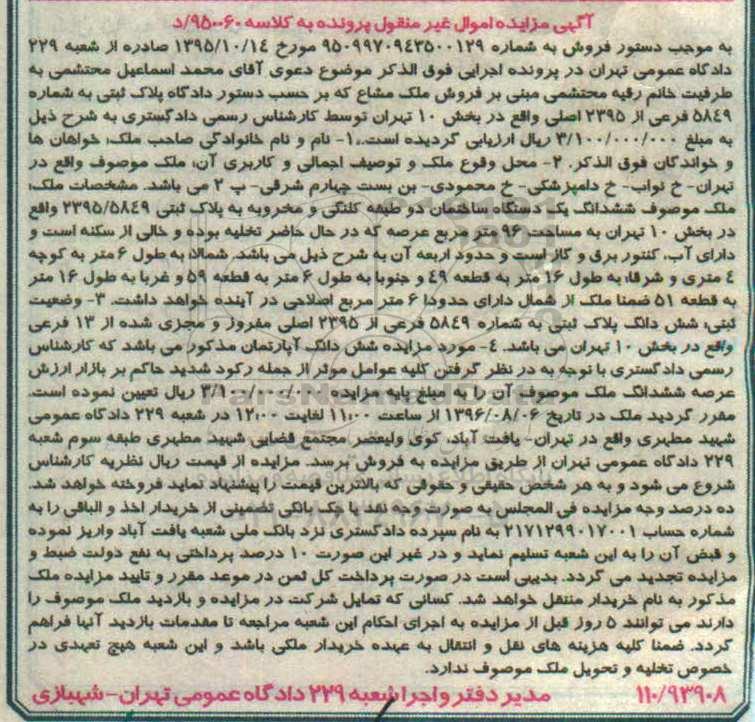 آگهی مزایده اموال غیر منقول پرونده به کلاسه ۹۵۰۰۶۰/د
به موجب دستور فروش به شماره ۹۵۰۹۹۷۰۹۴۳۵۰۰۱۲۹ مورخ ۱۳۹۵/۱۰/۱۴ صادره از شعبه ۲۲۹
دادگاه عمومی تهران در پرونده اجرایی فوق الذکر موضوع دعوی آقای محمد اسماعیل محتشمی به
طرفیت خانم رقیه محتشمی مبنی بر فروش ملک مشاع که بر حسب دستور دادگاه پلاک ثبتی به شماره
۵۸٤۹ فرعی از ۲۳۹۵ اصلی واقع در بخش ۱۰ تهران توسط کارشناس رسمی دادگستری به شرح ذیل
به مبلغ ۳/۱۰۰/۰۰۰/۰۰۰ ریال ارزیابی گردیده است.،۱- نام و نام خانوادگی صاحب ملک: خواهان ها
و خواندگان فوق الذکر. ۲- محل وقوع ملک و توصیف اجمالی و کاربری آن: ملک موصوف واقع در
تهران- خ نواب- خ دامپزشکی- خ محمودی- بن بست چهارم شرقی- پ ۲ می باشد. مشخصات ملک:
ملک موصوف ششدانگ یک دستگاه ساختمان دو طبقه کلنگی و مخروبه به پلاک ثبتی ۲۳۹۵/۵۸٤۹ واقع
در بخش ۱۰ تهران به مساحت ۹۶ متر مربع عرصه که در حال حاضر تخلیه بوده و خالی از سکنه است و
دارای آب، کنتور برق و گاز است و حدود اربعه آن به شرح ذیل می باشد. شمالا: به طول ۶ متر به کوچه
٤ متری و شرقا: به طول ۱۶ متر به قطعه ٤۹ و جنوبا به طول ۶ متر به قطعه ۵۹ و غربا به طول ۱۶ متر
به قطعه ۵۱ ضمنا ملک از شمال دارای حدودا ۶ متر مربع اصلاحی در آینده خواهد داشت. ۳- وضعیت
ثبتی: شش دانگ پلاک ثبتی به شماره ۵۸٤۹ فرعی از ۲۳۹۵ اصلی مفروز و مجزی شده از ۱۳ فرعی
واقع در بخش ۱۰ تهران می باشد. ٤- مورد مزایده شش دانگ آپارتمان مذکور می باشد که کارشناس
رسمی دادگستری با توجه به در نظر گرفتن کلیه عوامل موثر از جمله رکود شدید حاکم بر بازار ارزش
عرصه ششدانگ ملک موصوف آن را به مبلغ پایه مزایده ۳/۱۰۰/۰۰۰/۰۰۰ ریال تعیین نموده است.
مقرر گردید ملک در تاریخ ۱۳۹۶/۰۸/۰۶ از ساعت ۱۱:۰۰ لغایت ۱۲:۰۰ در شعبه ۲۲۹ دادگاه عمومی
شهید مطهری واقع در تهران- یافت آباد، کوی ولیعصر مجتمع قضایی شهید مطهری طبقه سوم شعبه
۲۲۹ دادگاه عمومی تهران از طریق مزایده به فروش برسد. مزایده از قیمت ریال نظریه کارشناس
شروع می شود و به هر شخص حقیقی و حقوقی که بالاترین قیمت را پیشنهاد نماید فروخته خواهد شد.
ده درصد وجه مزایده فی المجلس به صورت وجه نقد یا چک بانکی تضمینی از خریدار اخذ و الباقی را به
شماره حساب ۲۱۷۱۲۹۹۰۱۷۰۰۱ به نام سپرده دادگستری نزد بانک ملی شعبه یافت آباد واریز نموده
و قبض آن را به این شعبه تسلیم نماید و در غیر این صورت ۱۰ درصد پرداختی به نفع دولت ضبط و
مزایده تجدید می گردد. بدیهی است در صورت پرداخت کل ثمن در موعد مقرر و تایید مزایده ملک
مذکور به نام خریدار منتقل خواهد شد. کسانی که تمایل شرکت در مزایده و بازدید ملک موصوف را
دارند می توانند ۵ روز قبل از مزایده به اجرای احکام این شعبه مراجعه تا مقدمات بازدید آنها فراهم
گردد. ضمنا کلیه هزینه های نقل و انتقال به عهده خریدار ملکی باشد و این شعبه هیچ تعهدی در
خصوص تخلیه و تحویل ملک موصوف ندارد.
۱۱۰/۹۳۹۰۸ مدیر دفتر و اجرا شعبه ۲۲۹ دادگاه عمومی تهران- شهبازی